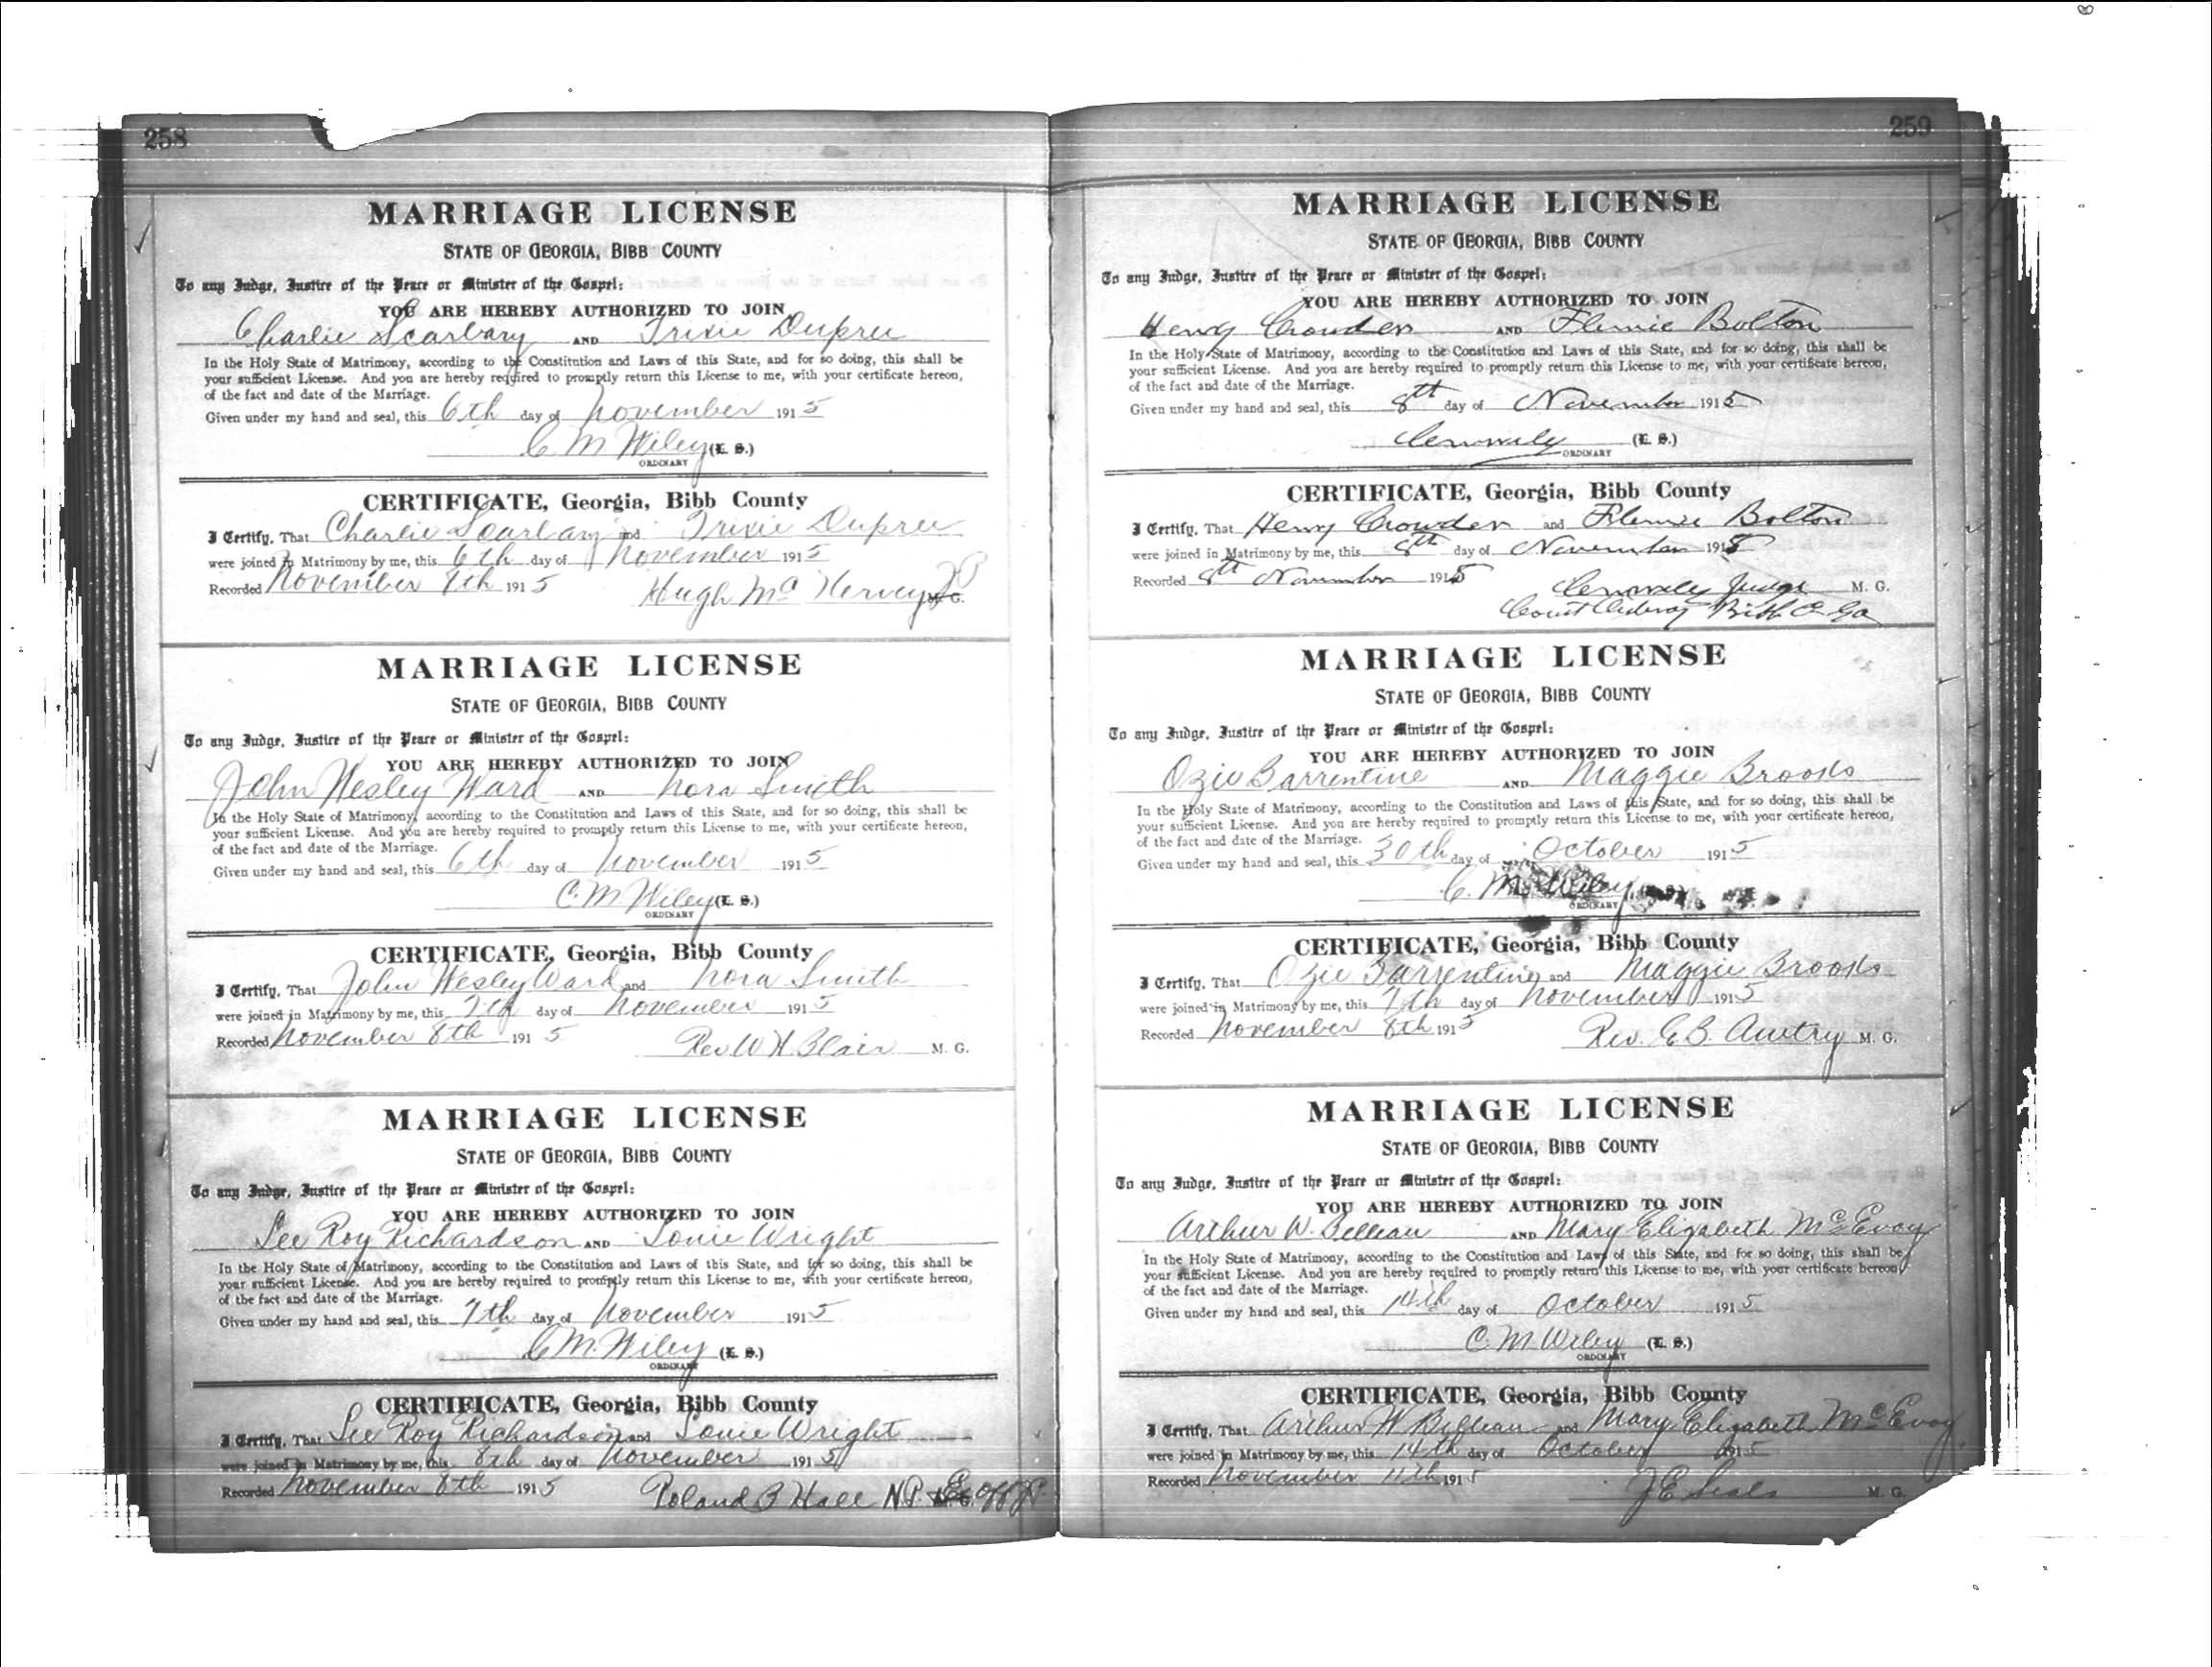 258
MARRIAGE LICENSE
STATE OF GEORGIA, BIBB COUNTY
To any Judge, Justice of the Peace or Minister of the Gospel:
YOU ARE HEREBY AUTHORIZED TO JOIN
Charlie Scarbary AND Trixie Dupree
In the Holy State of Matrimony, according to the Constitution and Laws of this State, and for so doing, this shall be
your sufficient License. And you are hereby required to promptly return this License to me, with your certificate hereon,
of the fact and date of the Marriage.
Given under my hand and seal, this 6th day of November 1915
C. M Wiley (L. S.)
ORDINARY
CERTIFICATE, Georgia, Bibb County
I Certify, That Charlie Scarbary and Trixie Dupree
were joined in Matrimony by me, this 6th day of November 1915
Recorded November 8th 1915 Hugh Mc Kervey JP M. G.
MARRIAGE LICENSE
STATE OF GEORGIA, BIBB COUNTY
To any Judge, Justice of the Peace or Minister of the Gospel:
YOU ARE HEREBY AUTHORIZED TO JOIN
John Wesley Ward AND Nora Smith
In the Holy State of Matrimony, according to the Constitution and Laws of this State, and for so doing, this shall be
your sufficient License. And you are hereby required to promptly return this License to me, with your certificate hereon,
of the fact and date of the Marriage.
Given under my hand and seal, this 6th day of November 1915
C. M Wiley (L. S.)
ORDINARY
CERTIFICATE, Georgia, Bibb County
I Certify, That John Wesley Ward and Nora Smith
were joined in Matrimony by me, this 7th day of November 1915
Recorded November 8th 1915 Rev W H. Blair M. G.
MARRIAGE LICENSE
STATE OF GEORGIA, BIBB COUNTY
To any Judge, Justice of the Peace or Minister of the Gospel:
YOU ARE HEREBY AUTHORIZED TO JOIN
Lee Roy Richardson AND Louie Wright
In the Holy State of Matrimony, according to the Constitution and Laws of this State, and for so doing, this shall be
your sufficient License. And you are hereby required to promptly return this License to me, with your certificate hereon,
of the fact and date of the Marriage.
Given under my hand and seal, this 7th day of November 1915
C M. Wiley (L. S.)
ORDINARY
CERTIFICATE, Georgia, Bibb County
I Certify, That Lee Roy Richardson and Louie Wright
were joined in Matrimony by me, this 8th day of November 1915
Recorded November 8th 1915 Roland B Hall N.P.
259
MARRIAGE LICENSE
STATE OF GEORGIA, BIBB COUNTY
To any Judge, Justice of the Peace or Minister of the Gospel:
YOU ARE HEREBY AUTHORIZED TO JOIN
Henry Crowder AND Flemie Bolton
In the Holy State of Matrimony, according to the Constitution and Laws of this State, and for so doing, this shall be
your sufficient License. And you are hereby required to promptly return this License to me, with your certificate hereon,
of the fact and date of the Marriage.
Given under my hand and seal, this 8th day of November 1915
C M Wiley (L. S.)
ORDINARY
CERTIFICATE, Georgia, Bibb County
I Certify, That Henry Crowder and Flemie Bolton
were joined in Matrimony by me, this 8th day of November 1915
Recorded 8th November 1915 C M Wiley Judge M. G.
Court Bibb Co Ga
MARRIAGE LICENSE
STATE OF GEORGIA, BIBB COUNTY
To any Judge, Justice of the Peace or Minister of the Gospel:
YOU ARE HEREBY AUTHORIZED TO JOIN
Ozie Barrentine AND Maggie Brooks
In the Holy State of Matrimony, according to the Constitution and Laws of this State, and for so doing, this shall be
your sufficient License. And you are hereby required to promptly return this License to me, with your certificate hereon,
of the fact and date of the Marriage.
Given under my hand and seal, this 30th day of October 1915
C. M. Wiley (L. S.)
ORDINARY
CERTIFICATE, Georgia, Bibb County
I Certify, That Ozie Barrentine and Maggie Brooks
were joined in Matrimony by me, this 7th day of November 1915
Recorded November 8th 1915 Rev. E B. Awtry M. G.
MARRIAGE LICENSE
STATE OF GEORGIA, BIBB COUNTY
To any Judge, Justice of the Peace or Minister of the Gospel:
YOU ARE HEREBY AUTHORIZED TO JOIN
Arthur W. Belleau AND Mary Elizabeth McEvoy
In the Holy State of Matrimony, according to the Constitution and Laws of this State, and for so doing, this shall be
your sufficient License. And you are hereby required to promptly return this License to me, with your certificate hereon,
of the fact and date of the Marriage.
Given under my hand and seal, this 14th day of October 1915
C. M. Wiley (L. S.)
ORDINARY
CERTIFICATE, Georgia, Bibb County
I Certify, That Arthur W Belleau and Mary Elizabeth McEvoy
were joined in Matrimony by me, this 14th day of October 1915
Recorded November 11th 1915 J E Seals M. G.